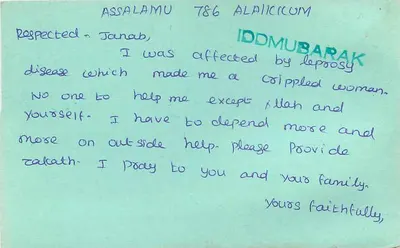 ASSALAMU 786 ALAIICICUM
Respected - Janab,
IDDMUBARAK
I was affected by leprosy
disease which made me a crippled woman.
No one to help me except Allah and
yourself. I have to depend more and
more on outside help. please provide
zakath. I pray to you and your family.
yours faithfully,